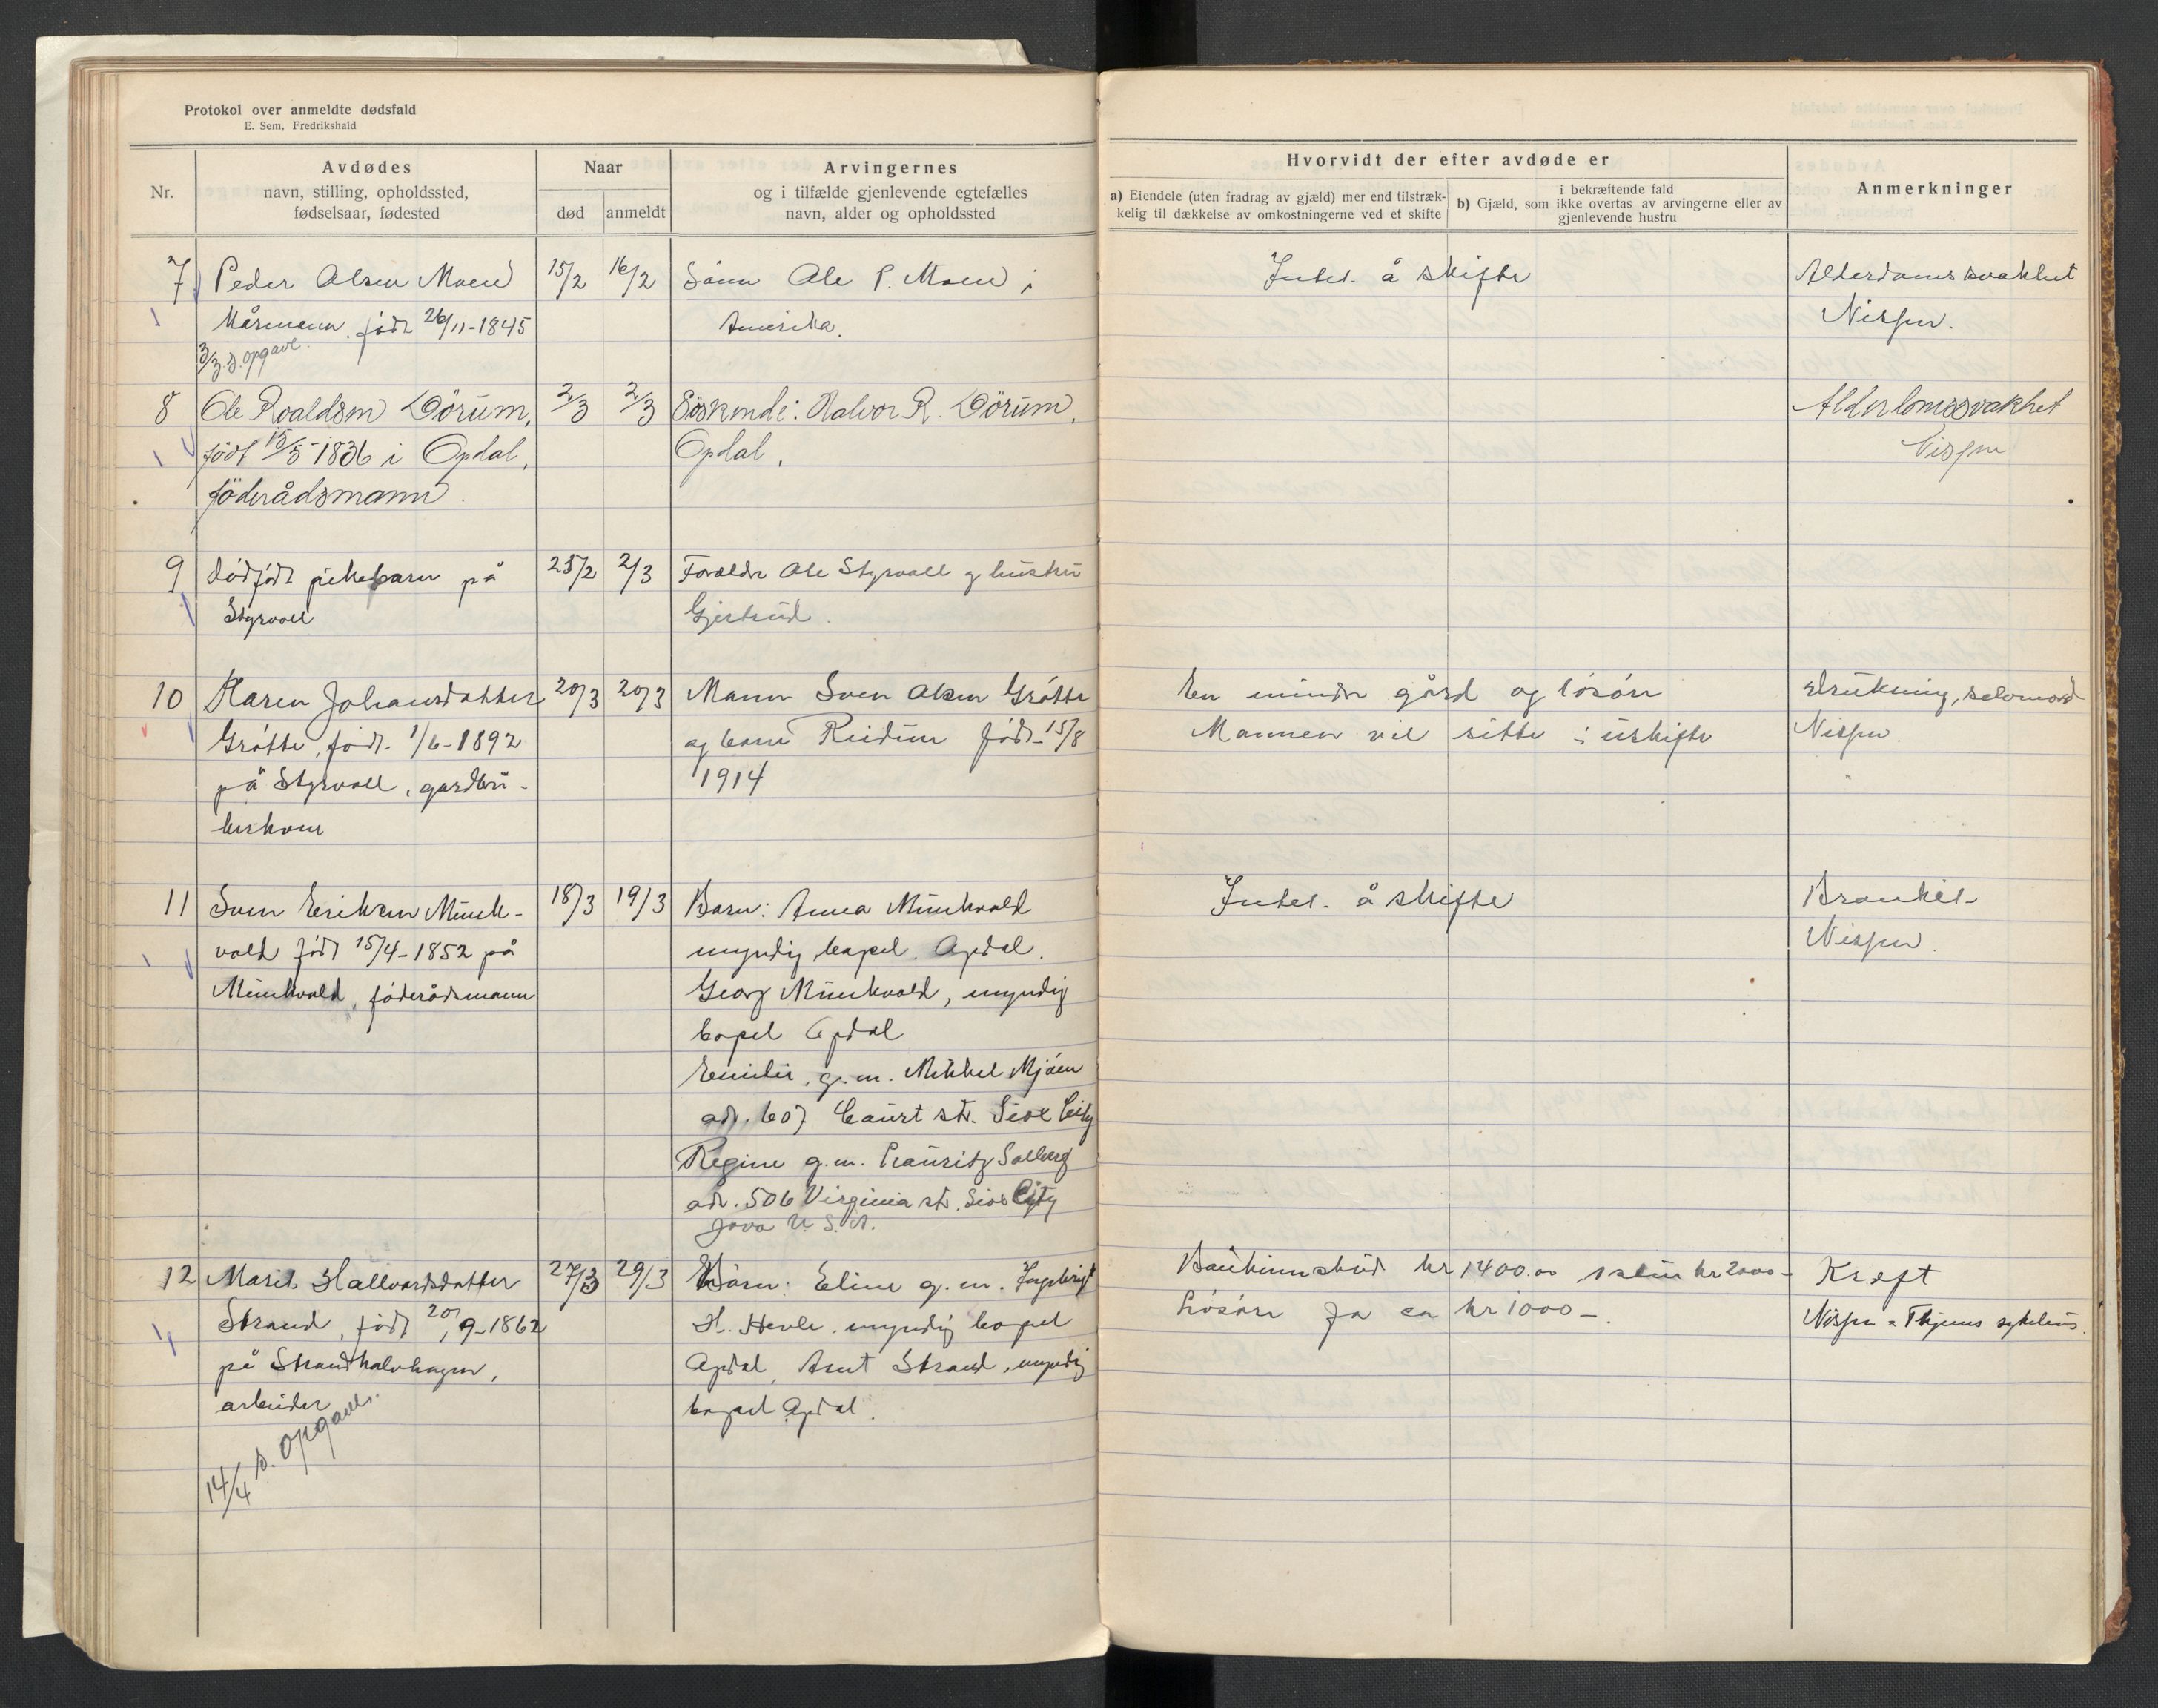 Protokol over anmeldte dødsfald
E. Sem, Fredrikshald
Nr.
Avdødes
navn, stilling, opholdssted,
fødselsaar, fødested
Naar
død
anmeldt
Arvingernes
og i tilfælde gjenlevende egtefælles
navn, alder og opholdssted
Hvorvidt der efter avdøde er
a) Eiendele (uten fradrag av gjæld) mer end tilstræk-
kelig til dækkelse av omkostningerne ved et skifte
i bekræftende fald
b) Gjæld, som ikke overtas av arvingerne eller av
gjenlevende hustru
Anmerkninger
7 Peder Olsen Moen 15/2 16/2 Sønn Ole P. Moen i Intet å skifte Alderdomssvakhet
født 26/11-1845 Amerika. Nissen.
3/3 d. opgave.
8 Ole Roaldsen Dørum, 2/3 2/3 Søskende: Halvor R. Dørum, Alderdomssvakhet
født 15/5-1836 i Opdal, Opdal, Nissen
föderådsmann.
9 dødfødt pikebarn på 25/2 2/3 Foreldre Ole Styrvoll og hustru
Styrvoll Gjertrud.
10 Karen Johansdatter 20/3 20/3 Mann Sven Olsen Grøtte En mindre gård og løsøre Drukning, selvmord
Grøtte, født 1/6-1892 og barn Reidun født 15/8 Mannen vil sitte i uskifte Nissen.
på Styrvoll, gardbru- 1914
kerkone
11 Sven Eriksen Munk- 18/3 19/3 Barn: Anna Munkvold Intet å skifte Bronkit.
vold født 15/4-1852 på myndig bopel Opdal. Nissen.
Munkvold, føderådsmann Georg Munkvold, myndig
bopel Opdal
Emilie, g.m. Mikkel Mjøen
adr. 607 Court str. Siox City
Regine g.m. Solberg
adr. 506 Virginia str. Siox City
Jova U.S.A.
12 Marit Hallvardsdatter 27/3 29/3 Børn: Eline g.m. Ingebrigt Bankinnskud kr 1400.00 kr 2000- Kreft
Strand, født 20/9-1862 H. Hevle, myndig bopel Løsøre Ja ca kr 1000- Nissen - Thjems sykehus.
på Strandhalvhagen, Opdal, Arnt Strand, myndig
arbeider bopel Opdal.
14/4 d. opgave.